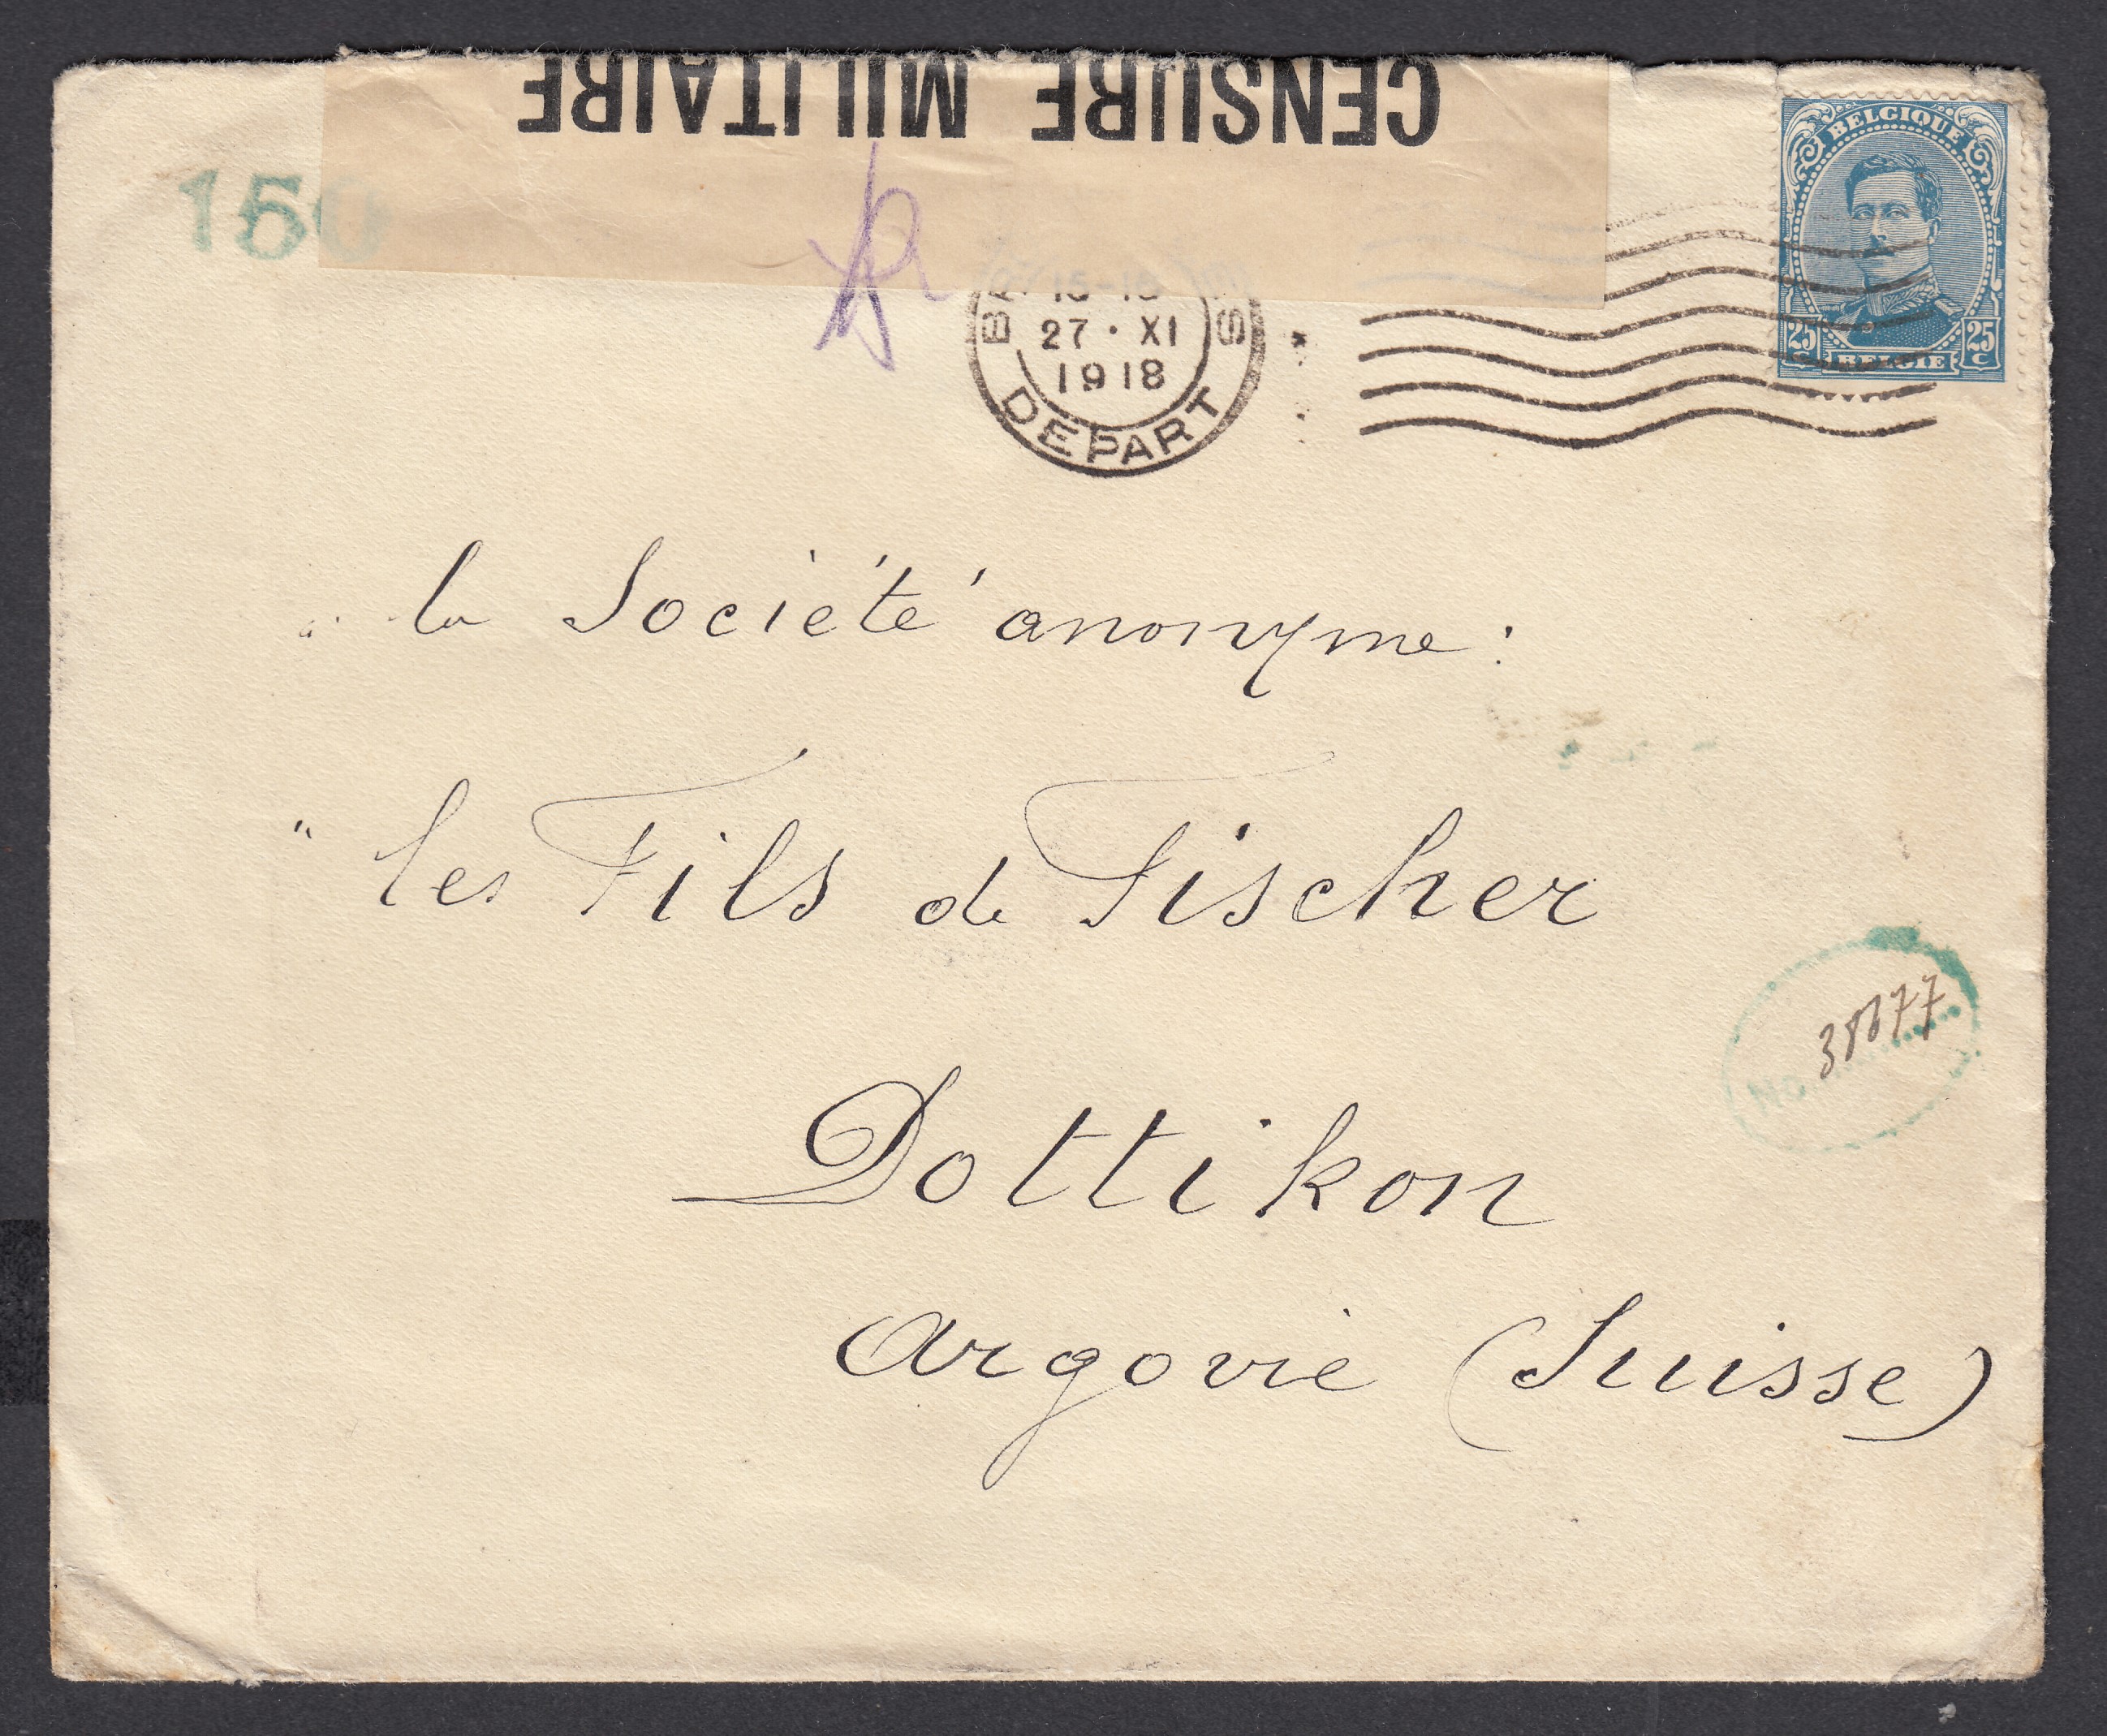 CENSURE MILITAIRE
150
BELGIQUE
25 25
C
BELGIE
15-16
27 · XI
1918
DEPART
à la Société anonyme :
" les Fils de Fischer
No 38677
Dottikon
Argovie (Suisse)